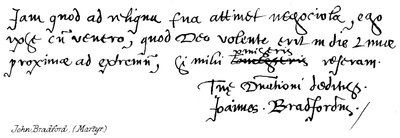 Jam quod ad reliqua sua attinet negociola, ego
ipse cū venero, quod Deo volente erit in die Lunae
proximae ad extremū, si
reseram.
Tuae Dnationi deditiss.
Joannes. Bradfordus.
John Bradford, (Martyr.)